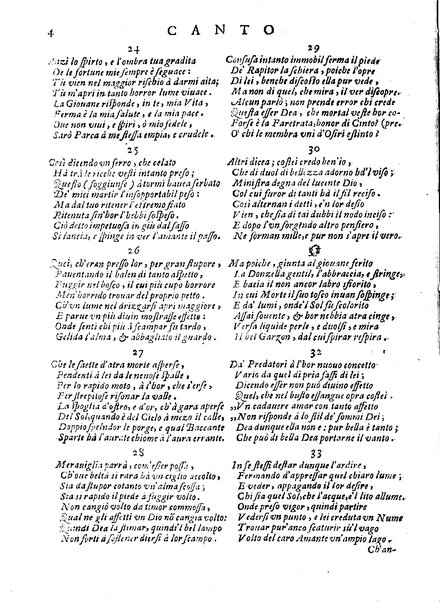 4
CANTO
24
Anzi lo spirto, e l'ombra tua gradita
De le fortune mie sempre è seguace:
Tù vien nel maggior rischio à darmi aita;
Tù m'apri in tanto horror lume vivace.
La Giovane risponde, in te, mia Vita,
Ferma è la mia salute, e la mia pace.
Que non vivi, e spiri, ò mio fedele,
Sarò Parca à me stessa empia, e crudele.
25
Così dicendo vn ferro, che celato
Hà trà le ricche vesti intanto preso;
Questo (soggiunse) à tormi havea serbato
De' miei martir l'insopportabil peso:
Ma dal tuo ritener l'etremito
Ritenuta sin'hor l'hebbi sospeso,
Ciò detto impetuosa in giù dal sasso
Si lancia, e spinge in ver l'amante il passo.
26
Quei, ch'eran presso lor, per gran stupore,
Paventando il balen di tanto aspetto,
Fuggir nel bosco, il cui più cupo horrore
Men'horrido trovar del proprio petto.
Ch'vn lume nel drizzarsi apri maggiore,
E parue vn più diuin mostrasse effetto:
Onde senti chi più à scampar fu tardo,
Gelida l'alma, & abbagliato il guardo.
27
Che le saette d'atra morte asperse,
Pendenti à lei da le neuose spalle,
Per lo rapido moto, à l'hor, che s'erse,
Per strepitose risonar la valle.
La spoglia d'ostro, e d'or, ch'à gara aperse
Del Sol, quando è del Cielo à mezo il calle,
Doppio splendor le porge, e qual Baccante
Sparte hà l'aurate chiome à l'aura errante.
28
Merauiglia parrà, com'esser possa,
Ch'oue beltà si rara hà vn ciglio accolto,
Sia da stupor cotanto vn'alma scossa;
Sia si rapido il piede à fuggir volto.
Non cangiò volto da timor commossa,
Qual ne gli affetti vn Dio nõ cangia volto:
Quindi Dea la stimar, quindi'l bel lampo
Non forti à sostener diersi à lor scampo.
29
Confusa intanto immobil ferma il piede
De' Rapitor la schiera, poiche l'opre
Di lei, benche discosto ella pur vede,
Ma non di quel, che mira, il ver discopre.
Alcun parlò; non prende error chi crede
Questa esser Dea, che mortal veste hor co-
Forse è la Faretrata, honor di Cinto? (pre.
O chi le membra vnì d'Osiri estinto?
30
Altri dicea; costei credo ben'io,
Che di duol di bellezza adorno hà'l viso;
Ministra degna del lucente Dio,
Col cui furor di tanti hà il fil reciso.
Così alternan i detti, e'n lor desio
Vien, che sia di tai dubbi il nodo inciso:
E dopo l'vn sorgendo altro pensiero,
Ne forman mille, e pur non s'apre il vero.
Ma poiche, giunta al giovane ferito
La Donzella gentil, l'abbraccia, e stringe,
E bacia il non ancor labro sfiorito,
In cui Morte il suo tosco inuan sospinge;
E da' lumi, onde'l Sol fù scolorito
Assai souente, & hor nebbia atra cinge,
Versa liquide perle, e duolsi, e mira
Il bel Garzon, dal cui spirar respira.
32
Da' Predatori à l'hor nuouo concetto
Vario da quel di pria fassi di lei;
Dicendo esser non può diuino effetto
Quel, che nel busto essangue opra costei.
„Vn cadauere amar con tanto affetto
„Non risponde à lo stil de' sommi Dei;
Dea dunque ella non è: pur bella è tanto;
Che può di bella Dea portarne il vanto.
33
In se stessi destar dunque l'ardire,
Fermando d'appressar quel chiaro lume;
E veder, appagando il lor desire,
Chi sia quel Sol, che l'acque, e'l lito allume.
Onde preso vigor, quindi partire
Vedersi vn punto, e lei creduta vn Nume
Trouar pur'anco scaturir sù'l vago
Volto del caro Amante vn'ampio lago.
Ch'an-